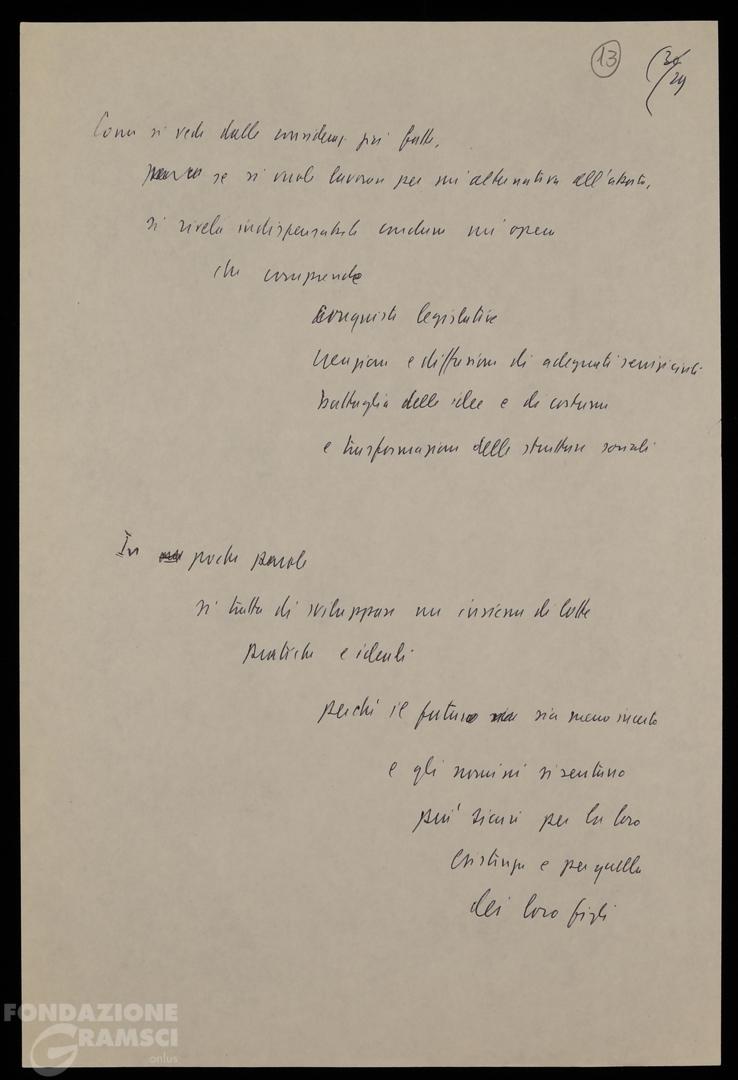 13
Come si vede dalle consideraz. più fatte,
se si vuole lavorare per un'alternativa all'aborto,
si rivela indispensabile condurre un'opera
che comprende
conquiste legislative
creazione e diffusione di adeguati servizi civili
battaglia delle idee e di costume
e trasformazione delle strutture sociali
In poche parole
si tratta di sviluppare un insieme di lotte
pratiche e ideali
perché il futuro sia meno incerto
e gli uomini si sentano
più sicuri per la loro
esistenza e per quella
dei loro figli
FONDAZIONE
GRAMSCI
onlus